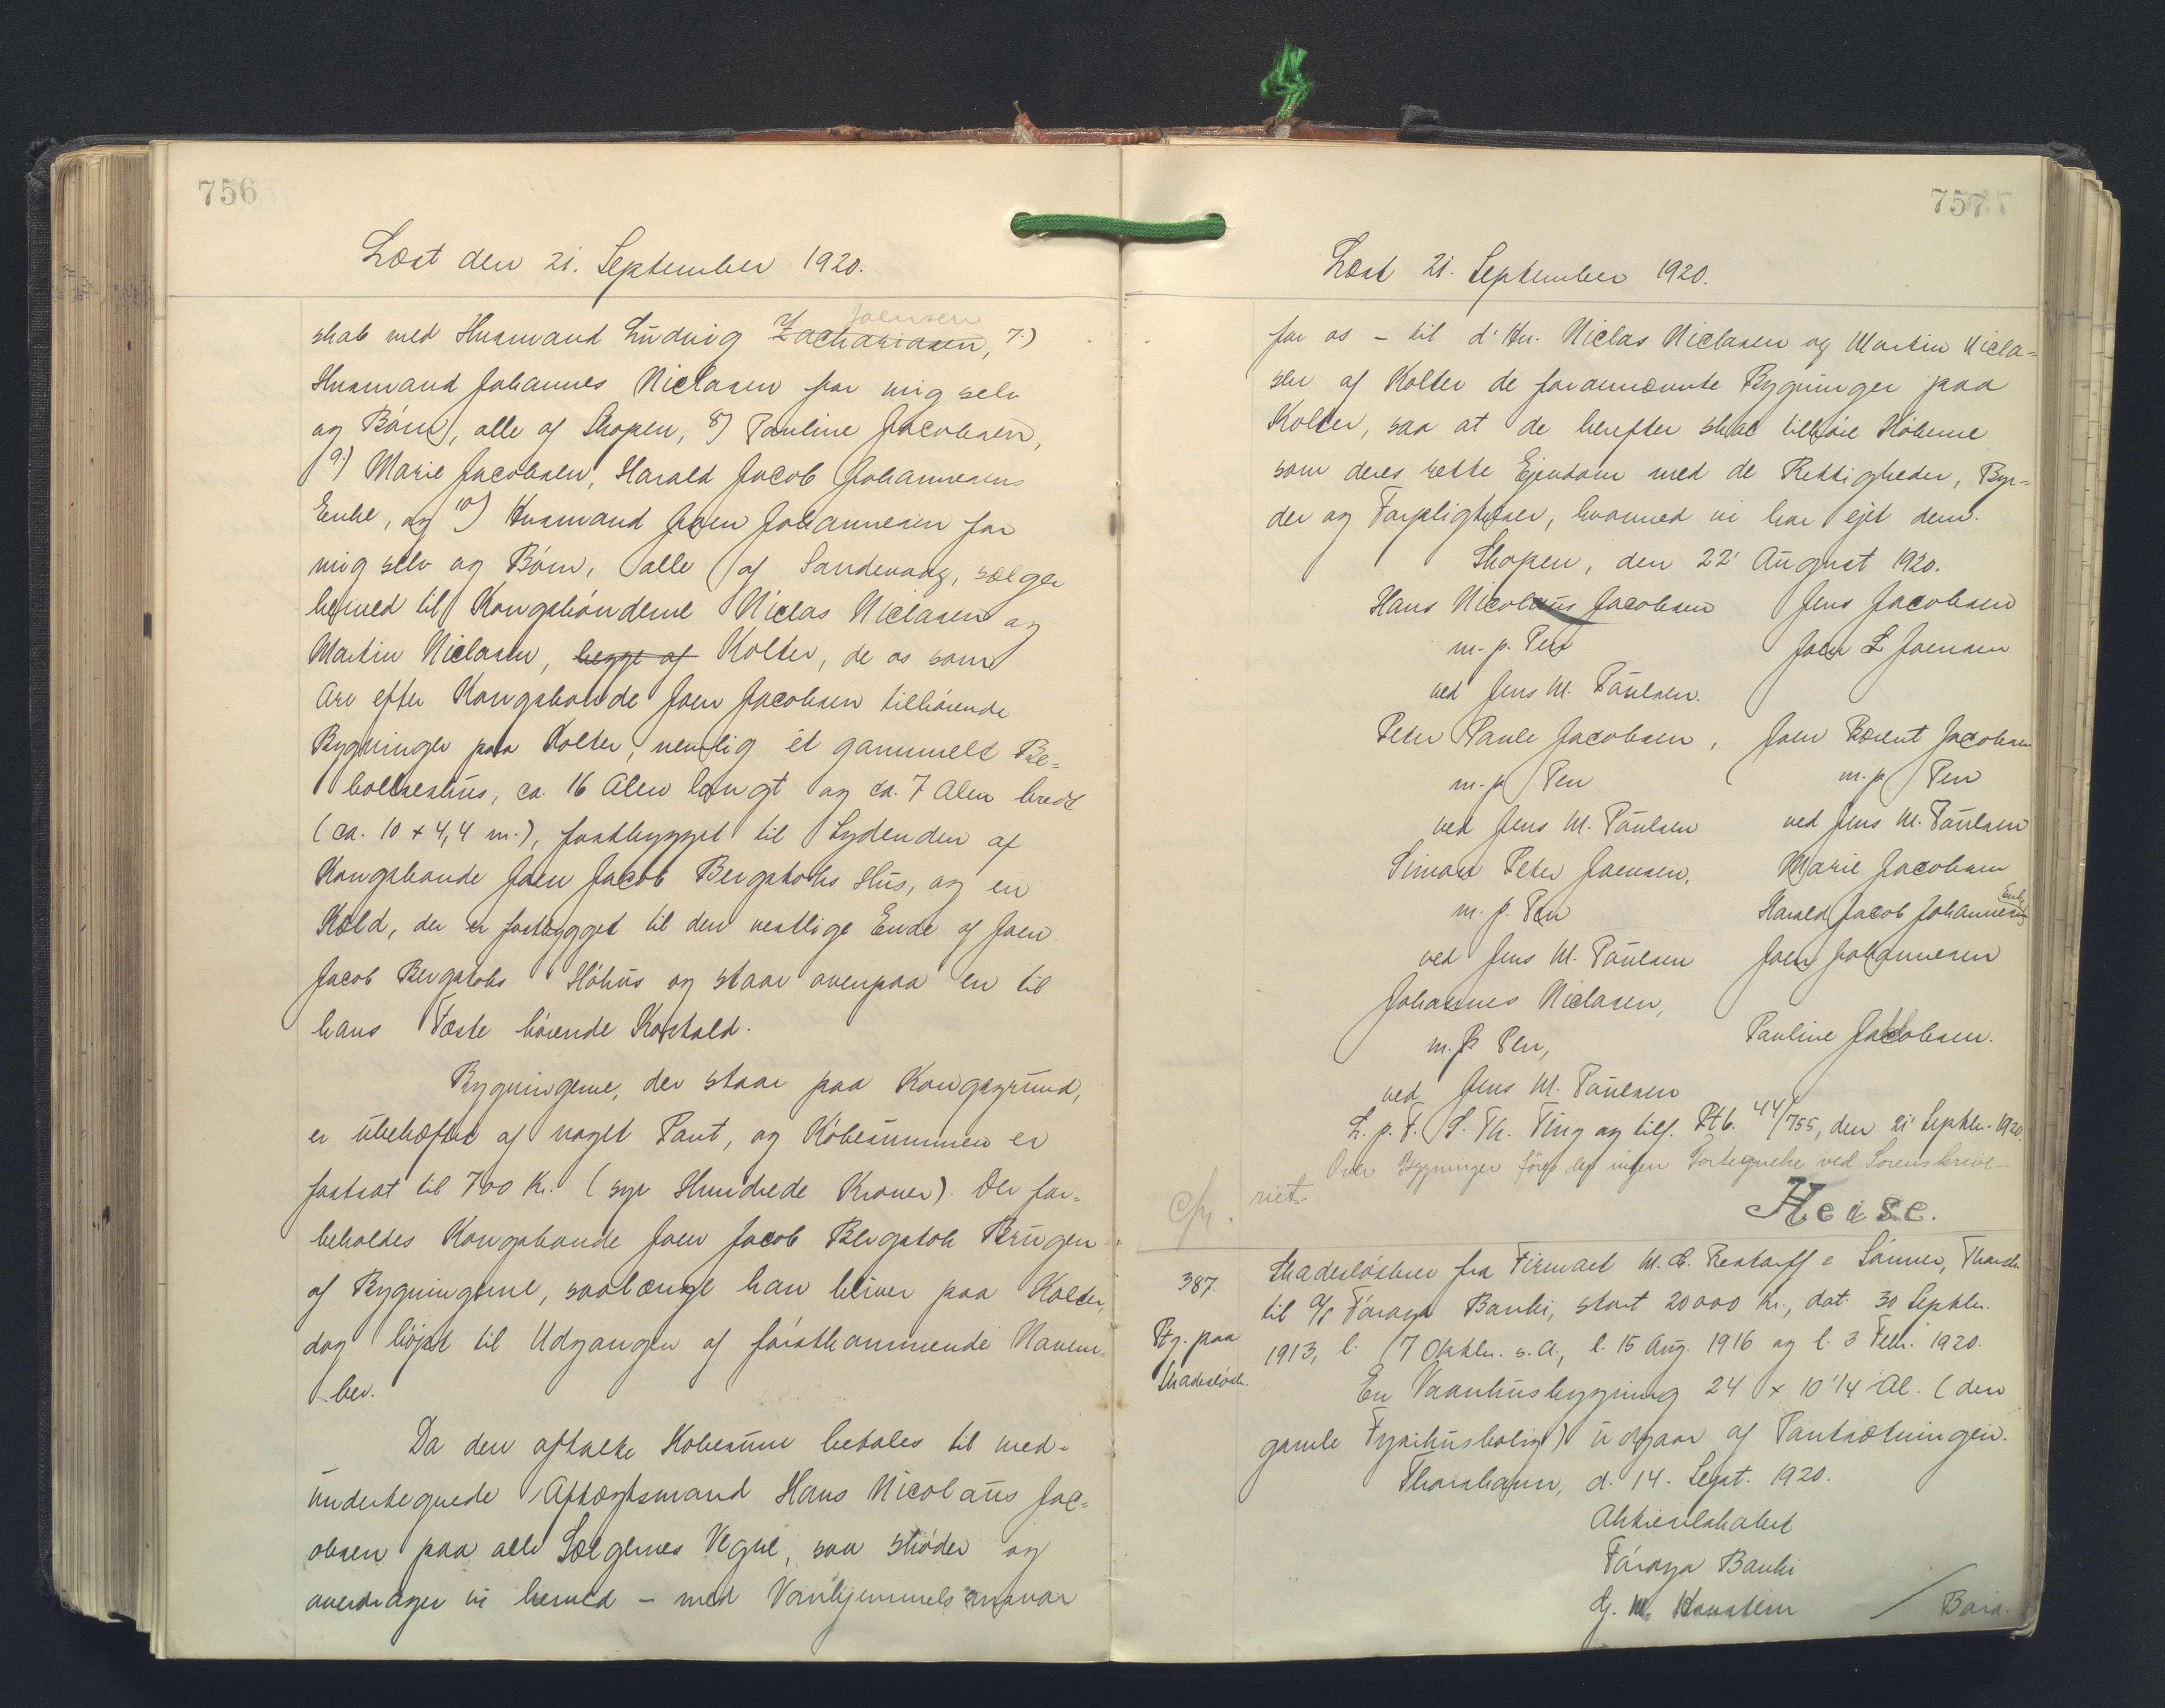 756
Læst den 21. September 1920.
Joensen
skab med Husmand Ludvig Zachariasen, 7.)
Husmand Johannes Niclasen for mig selv
og Børn, alle af Skopen, 8) Pauline Jacobsen,
9.) Marie Jacobsen, Harald Jacob Johannesens
Enke, og 10) Husmand Joen Johannesen for
mig selv og Børn, alle af Sandevaag, sælger
herved til Kongsbønderne Niclas Niclasen og
Martin Niclasen, begge af Kolter, de os som
Arv efter Kongsbonde Joen Jacobsen tilhørende
Bygninger paa Kolter, nemlig ét gammelt Be-
boelseshus, ca. 16 Alen langt og ca. 7 Alen bredt
(ca. 10 x 4,4 m.), fastbygget til Sydenden af
Kongsbonde Joen Jacob Bergstohs Hus, og en
Kold, der er fastbygget til den vestlige Ende af Joen
Jacob Bergstohs Høhus og staar ovenpaa en til
hans Fæste hørende Kostald.
Bygningerne, der staar paa Kongsgrund,
er ubehæftet af noget Pant, og Købesummen er
fastsat til 700 Kr. (syv Hundrede Kroner). Der for-
beholdes Kongsbonde Joen Jacob Bergstoh Brugen
af Bygningerne, saalænge han bliver paa Kolter,
dog højst til Udgangen af førstkommende Novem-
ber.
Da den aftalte Købesum betales til med-
undertegnede Aftægtsmand Hans Nicolaus Jac-
obsen paa alle Sælgernes Vegne, saa skøder og
overdrager vi herved - med Vanhjemmelsansvar
757
Læst 21. September 1920.
for os - til d'Hrr. Niclas Niclasen og Martin Nicla-
sen af Kolter de forannævnte Bygninger paa
Kolter, saa at de herefter skal tilhøre Køberne
som deres rette Ejendom med de Rettigheder, Byr-
der og Forpligtelser, hvormed vi har ejet dem.
Skopen, den 22' August 1920.
Hans Nicolaus Jacobsen Jens Jacobsen
m. p. Pen Joen L Joensen
ved Jens M. Paulsen.
Peter Paule Jacobsen, Joen Berent Jacobsen
m. p. Pen m. p. Pen
ved Jens M. Paulsen ved Jens M. Paulsen
Simon Peter Joensen, Marie Jacobsen
m. p. Pen Harald Jacob Johannesens Enke
ved Jens M. Paulsen Joen Johannesen
Johannes Niclasen,
m. p. Pen, Pauline Jacobsen.
ved Jens M. Paulsen
L. p. F. S. Th. Ting og tilf. Ptb. 44/755, den 21' Septbr. 1920.
Over Bygninger føres der ingen Fortegnelse ved Sorenskrive-
riet.
Heise.
387.
Ptg. paa
Skadesløsb.
Skadesløsbrev fra Firmaet M. C. Restorff & Sønner, Thorsh.
til A/S Føroya Banki, stort 20000 Kr., dat. 30 Septbr.
1913, l. 7 Oktbr. s. A., l. 15 Aug. 1916 og l. 3 Febr. 1920.
En Vaanhusbygning 24 x 10 1/4 Al. (den
gamle Fysikusbolig) udgaar af Pantsætningen.
Thorshavn, d. 14. Sept. 1920.
Aktieselskabet
Føroya Banki